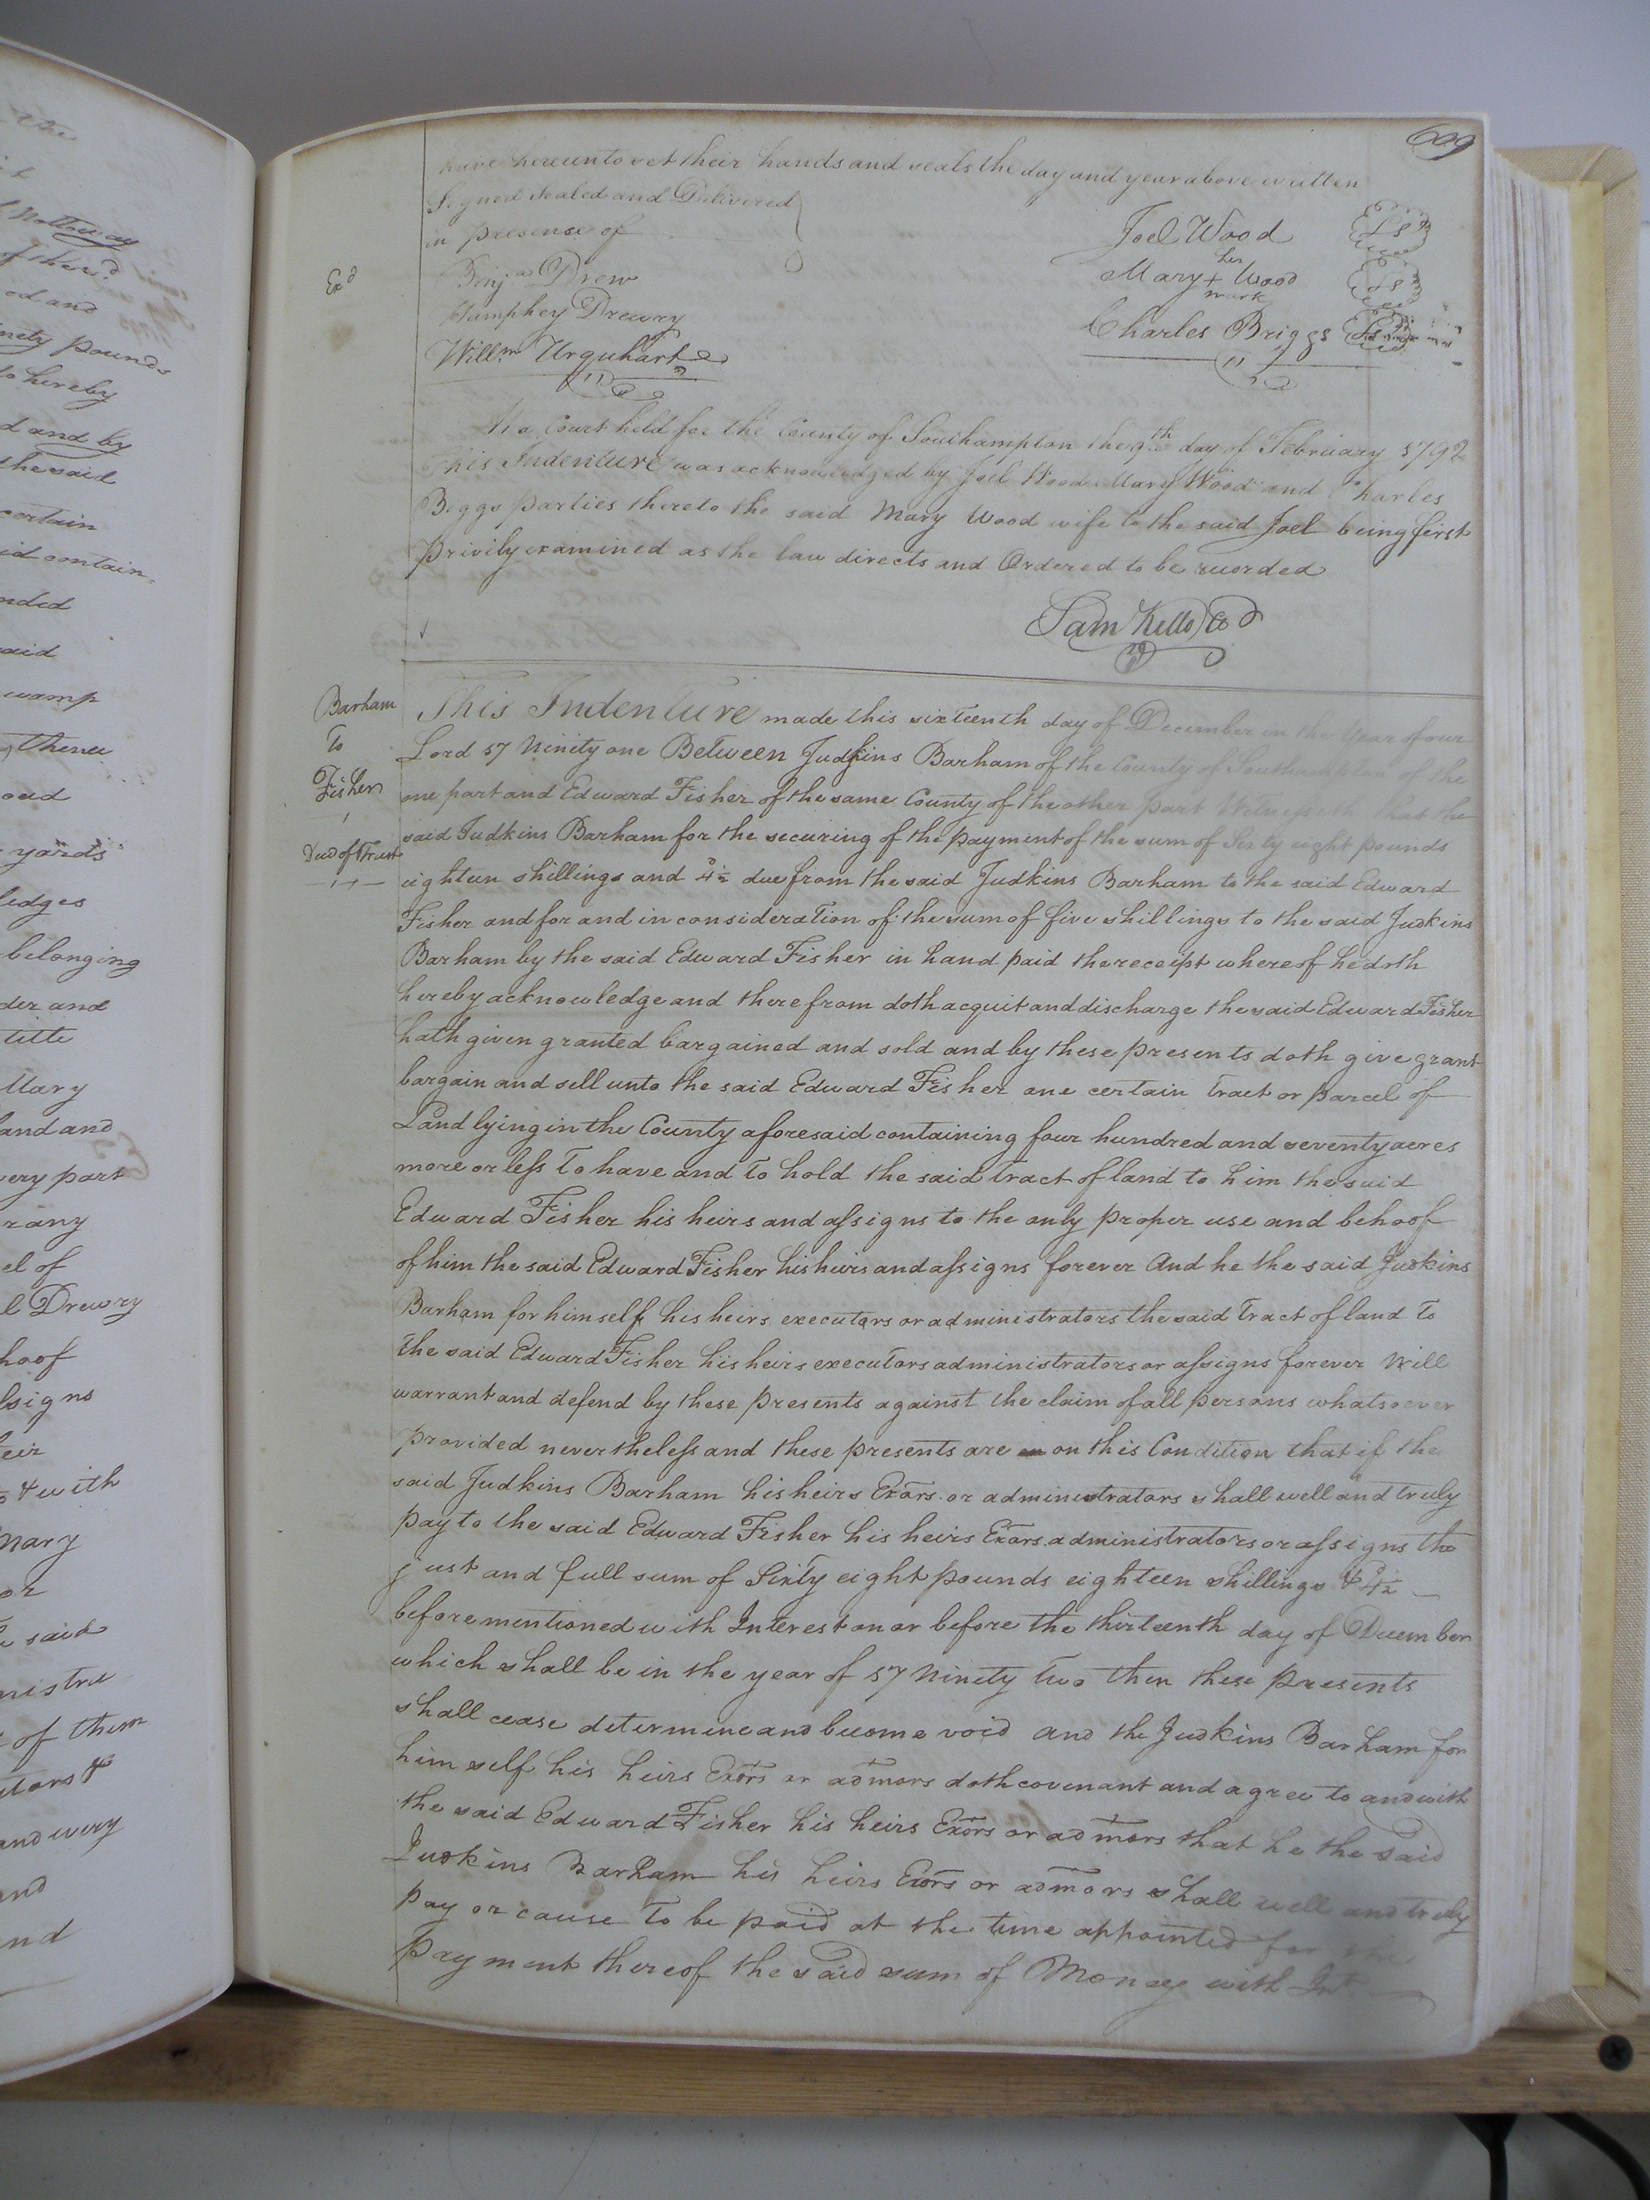 609
have hereunto set their hands and seals the day and year above written
Signed Sealed and Delivered
in presense of
Joel Wood LS
Exd
Benja Drew
her
Mary + Wood LS
mark
Humphey Drewry
Charles Briggs
Willm Urquhart
At a Court held for the County of Southampton the 9th day of February 1792
This Indenture was acknowledged by Joel Wood Mary Wood and Charles
Beggs parties thereto the said Mary Wood wife to the said Joel being first
privily examined as the law directs and Ordered to be recorded
Sam Kello
Barham
To
Fisher
Deed of Trust
This Indenture made this sixteenth day of December in the Year of our
Lord 17 Ninity one Between Judkins Barham of the County of Southampton of the
one part and Edward Fisher of the same County of the other part Witnesseth that the
said Judkins Barham for the securing of the payment of the sum of Sixty eight pounds
eighteen shillings and 4½ due from the said Judkins Barham to the said Edward
Fisher and for and in consideration of the sum of five shillings to the said Judkins
Barham by the said Edward Fisher in hand paid the receipt whereof he doth
hereby acknowledge and therefrom doth acquit and discharge the said Edward Fisher
hath given granted bargained and sold and by these presents doth give grant
bargain and sell unto the said Edward Fisher one certain tract or parcel of
Land lying in the County aforesaid containing four hundred and seventy acres
more or less To have and to hold the said tract of land to him the said
Edward Fisher his heirs and assigns to the only proper use and behoof
of him the said Edward Fisher his heirs and assigns forever And he the said Judkins
Barham for himself his heirs executors or administrators the said tract of land to
the said Edward Fisher his heirs executors administrators or assigns forever Will
warrant and defend by these presents against the claim of all persons whatsoever
provided nevertheless and these presents are on this Condition that if the
said Judkins Barham his heirs Exors. or administrators shall well and truly
pay to the said Edward Fisher his heirs Exors. administrators or assigns the
just and full sum of Sixty eight pounds eighteen shillings & 4½
before mentioned with Interest on or before the thirteenth day of December
which shall be in the year of 17 Ninety two then these presents
shall cease determine and become void and the Judkins Barham for
himself his heirs Exors or admors doth covenant and agree to and with
the said Edward Fisher his heirs Exors or admors that he the said
Judkins Barham his heirs Exors or admors shall well and truly
pay or cause to be paid at the time appointed for the
payment thereof the said sum of Money with Int